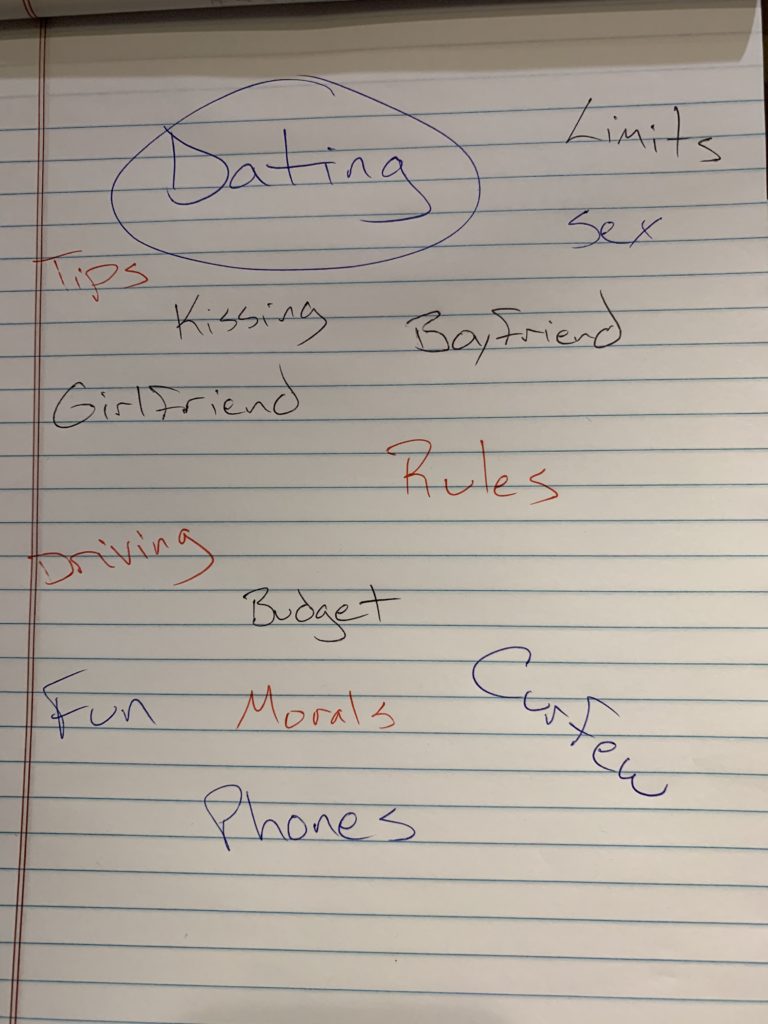 Dating
Limits
Sex
Tips
Kissing
Boyfriend
Girlfriend
Rules
Driving
Budget
Fun
Morals
Curfew
Phones